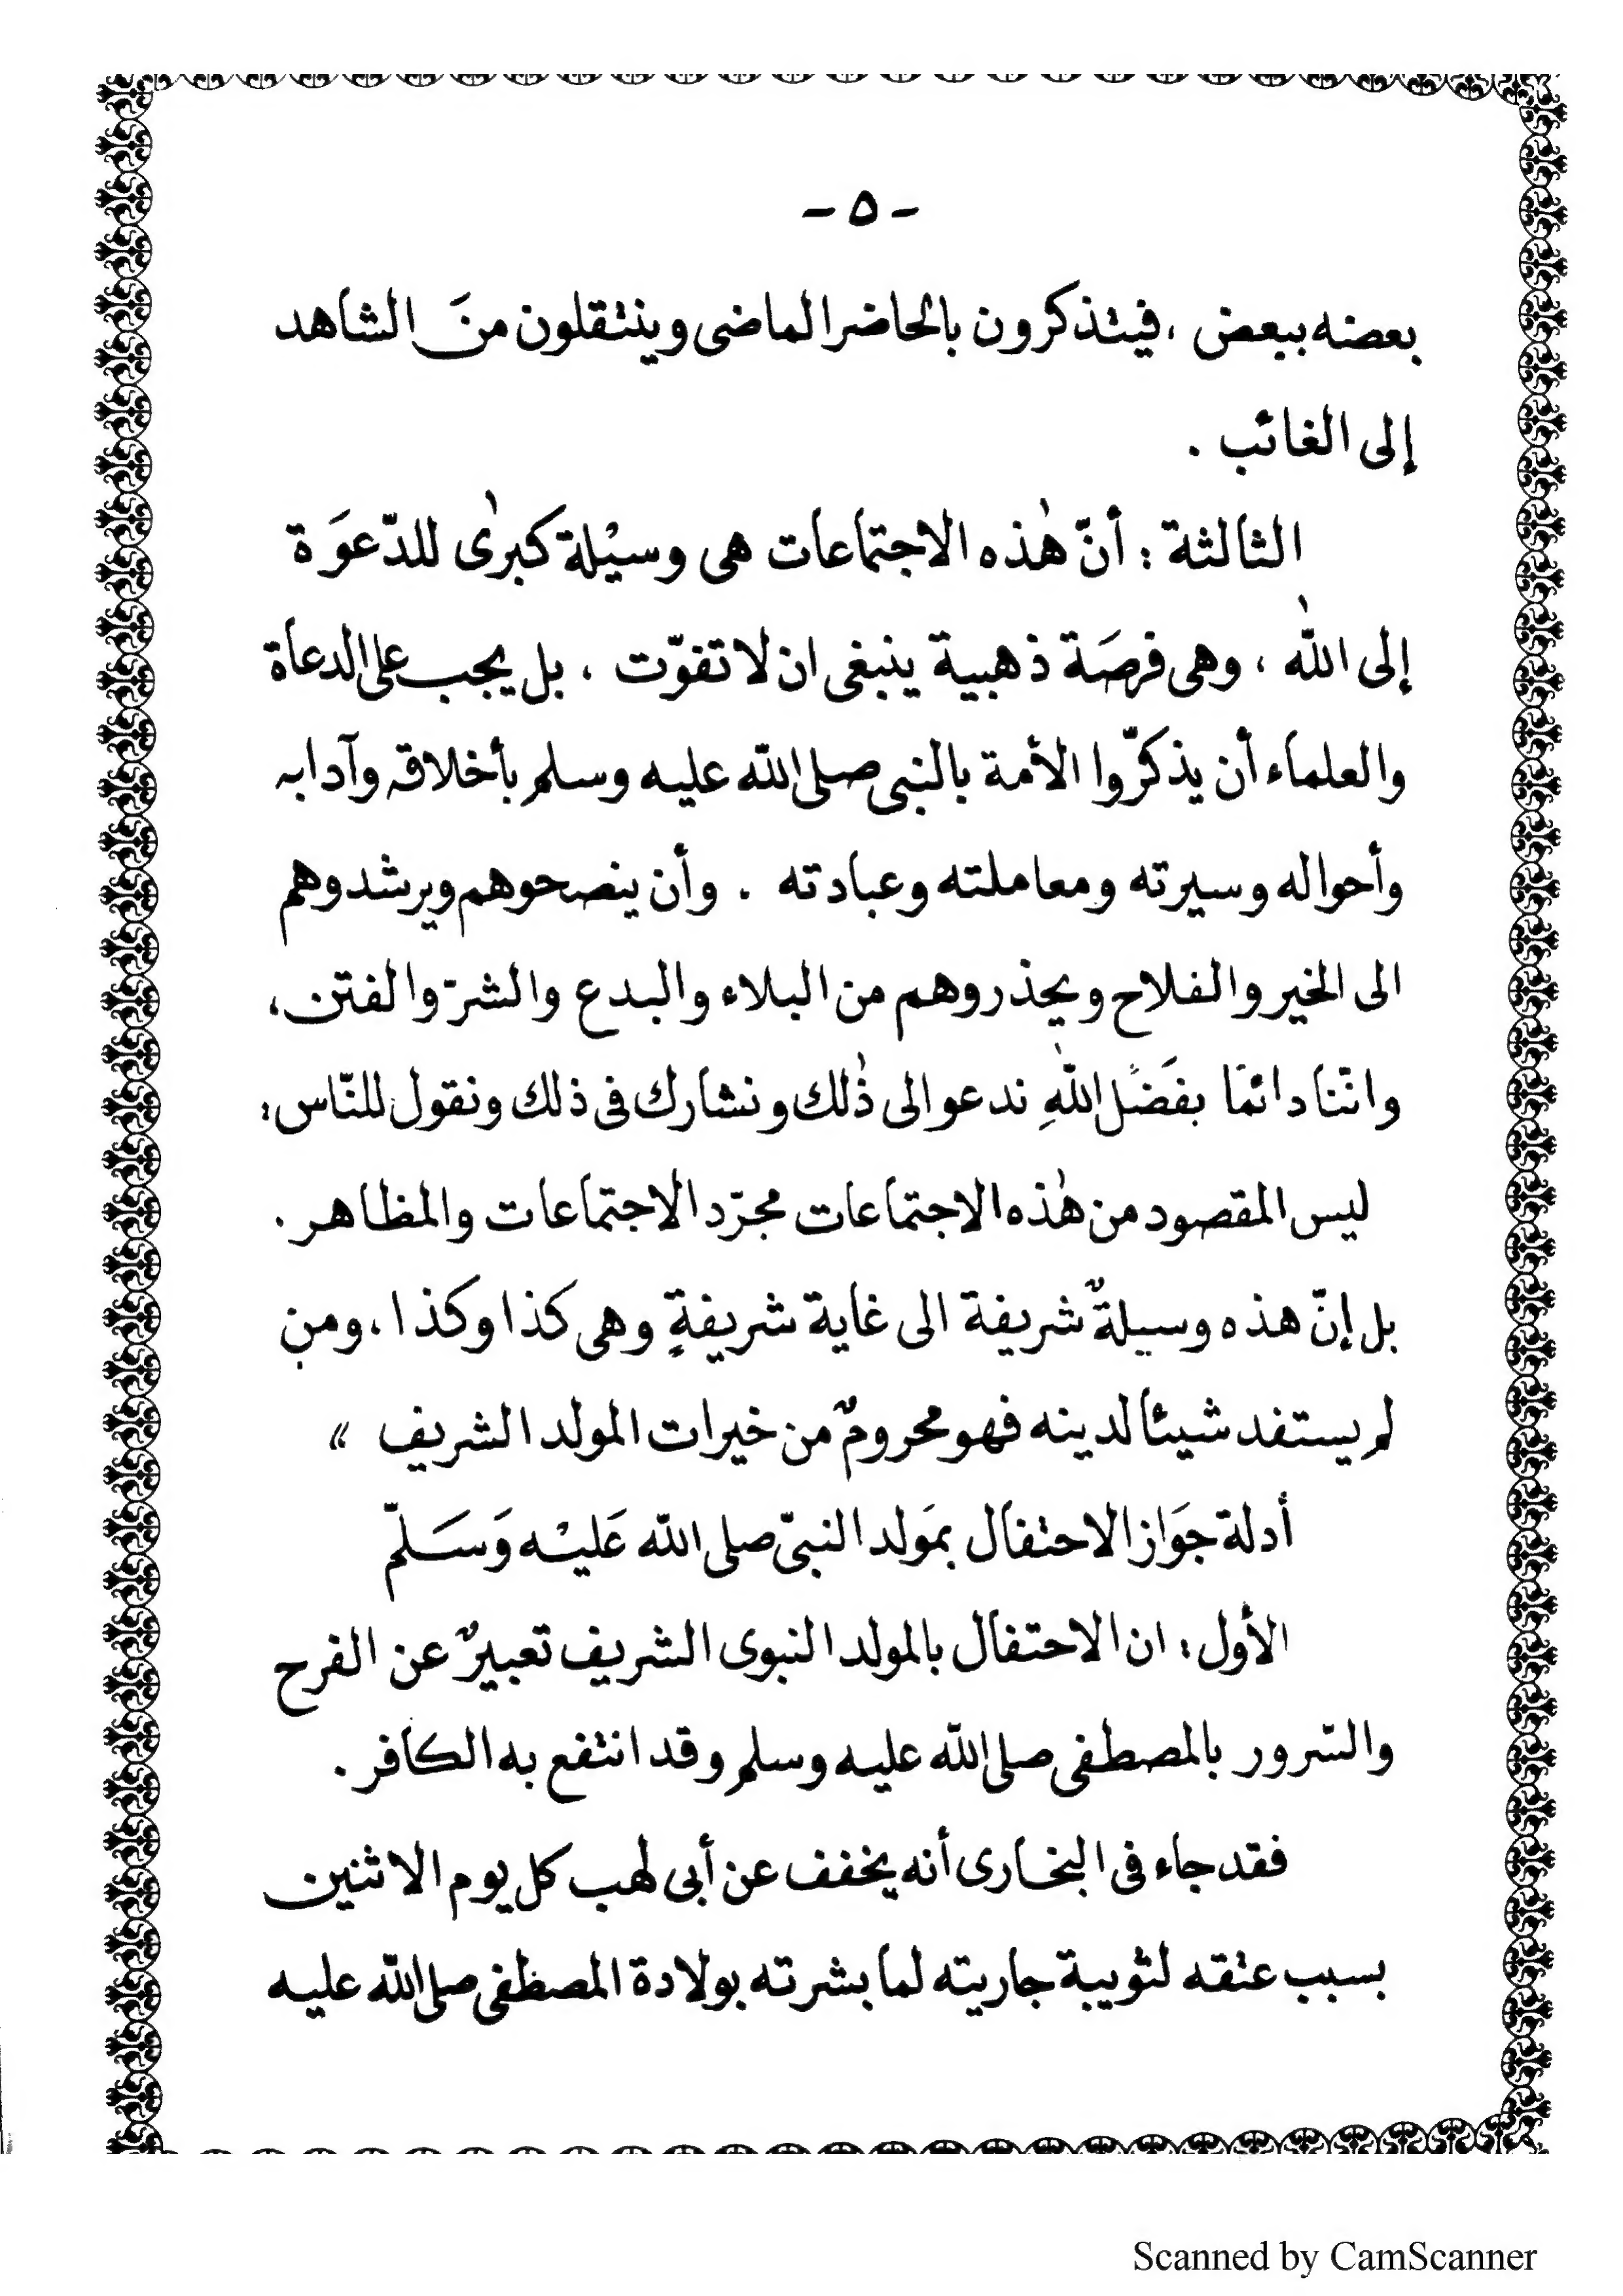 - ٥ -
بعضه ببعض ، فيتذكرون بالحاضر الماضى وينتقلون منَ الشاهد
إلى الغائب .
الثالثة : أنّ هٰذه الاجتماعات هى وسيْلة كبرىٰ للدّعوَة
إلى اللّٰه ، وهى فرصَة ذهبية ينبغى ان لا تفوّت ، بل يجب على الدعاة
والعلماء أن يذكّروا الأمة بالنبى صلى اللّه عليه وسلم بأخلاقه وآدابه
وأحواله وسيرته ومعاملته وعبادته . وأن ينصحوهم ويرشدوهم
الى الخير والفلاح ويحذروهم من البلاء والبدع والشرّ والفتن ،
واننا دائمًا بفضَل اللّٰهِ ندعو الى ذٰلك ونشارك فى ذلك ونقول للنّاس :
ليس المقصود من هٰذه الاجتماعات مجرّد الاجتماعات والمظاهر .
بل إنّ هذه وسيلةٌ شريفة الى غاية شريفةٍ وهى كذا وكذا ، ومن
لم يستفد شيئا لدينه فهو محرومٌ من خيرات المولد الشريف »
أدلة جَواز الاحتفال بمَولد النبىّ صلى اللّه عَليْه وَسَلّم
الأول : ان الاحتفال بالمولد النبوى الشريف تعبيرٌ عن الفرح
والسّرور بالمصطفى صلى اللّه عليه وسلم وقد انتفع به الكافر .
فقد جاء فى البخارى أنه يخفف عن أبى لهب كل يوم الاثنين
بسبب عتقه لثويبة جاريته لما بشرته بولادة المصطفى صلى اللّه عليه
Scanned by CamScanner